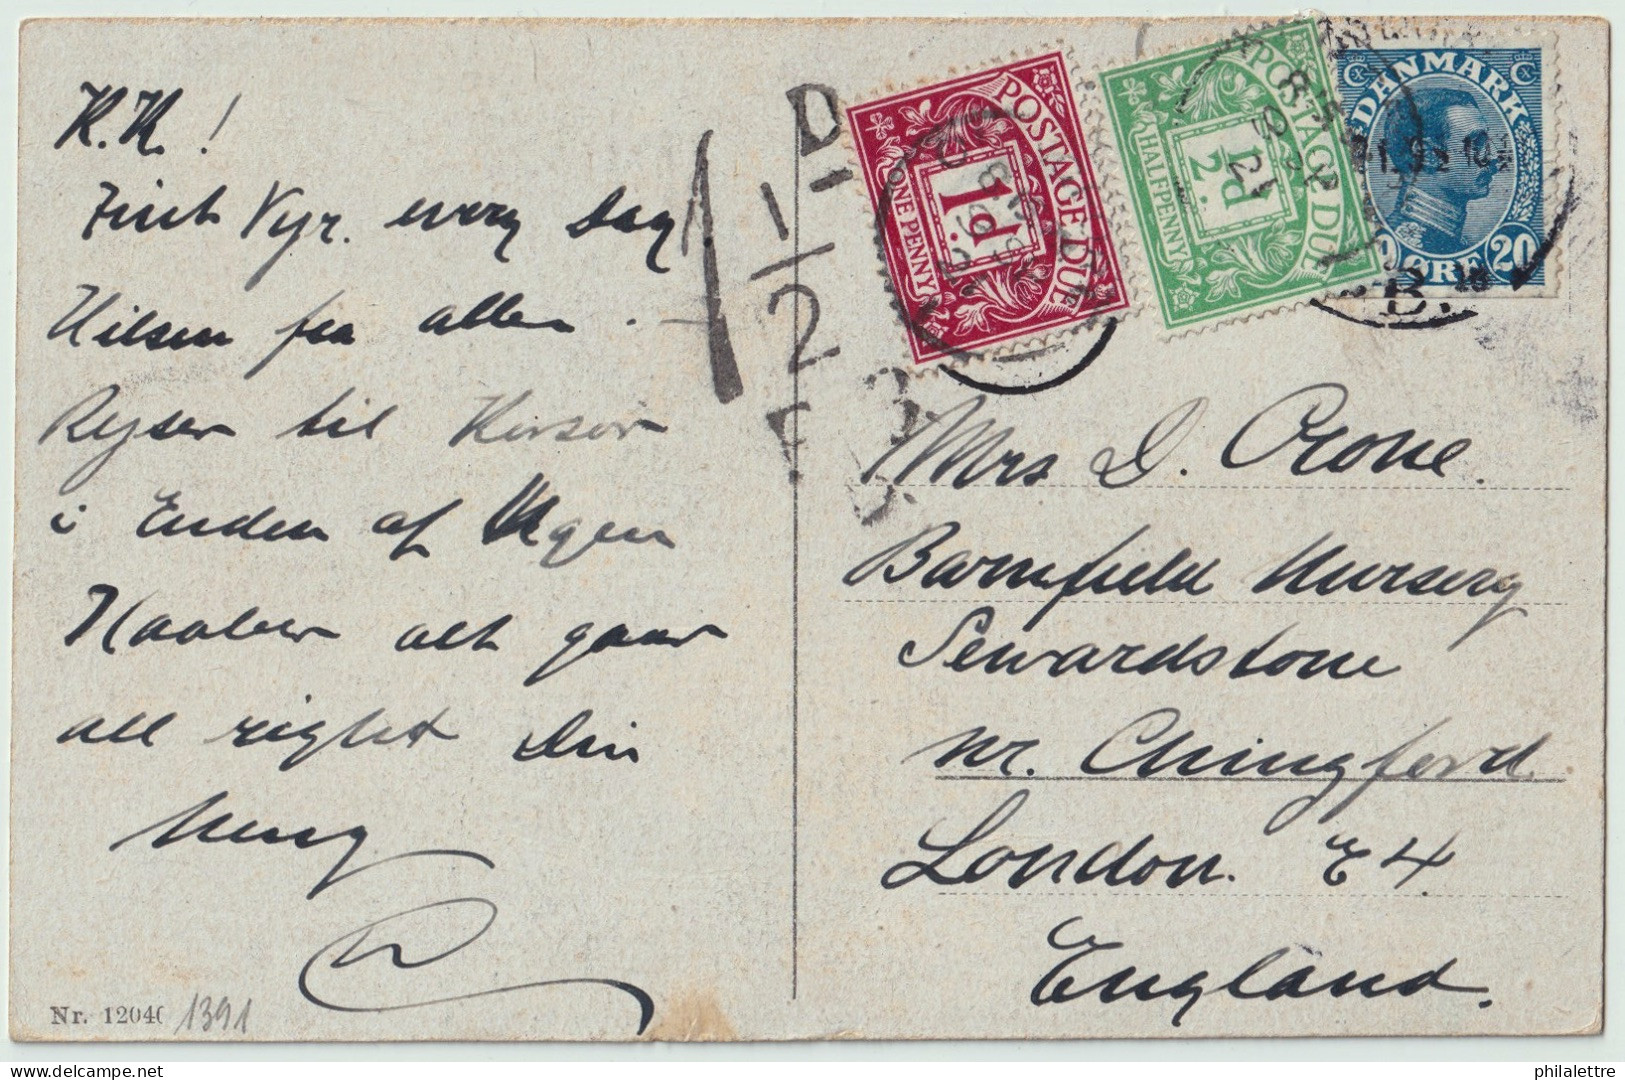 K.K!
Fint Vejr. every Dag
Hilsen fra alle.
Rejser til Korsør
i Enden af Ugen
Haaber alt gaar
all right Din
Nr. 12040
1391
1½D
POSTAGE DUE
1d.
ONE PENNY
POSTAGE DUE
½d
HALFPENNY
DANMARK
20 ØRE
B.
Mrs D. Crone.
Barnfield Nursery
Sewardstone
nr. Chingford
London. E4.
England.
philalettre